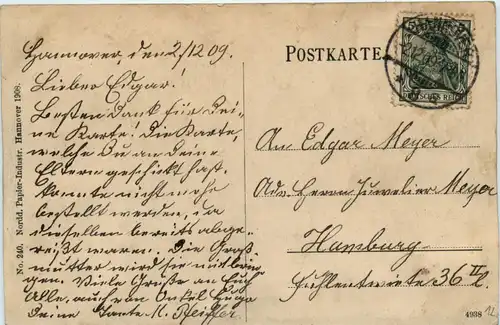 Hannover, den 2/12 09.
Lieber Edgar!
Besten Dank für Dei-
ne Karte! Die Karte,
welche Du an Deine
Eltern geschickt hast
konnte nicht mehr
bestellt werden, da
dieselben bereits abge-
reißt waren. Die Groß
mutter wird sie mitbrin
gen. Viele Grüße an Euch
Alle, auch von Onkel Hugo
Deine Tante M. Pfeiffer
No. 240. Nordd. Papier-Industr. Hannover 1908.
POSTKARTE
DEUTSCHES REICH
An Edgar Meyer
Adr. Herrn Juwelier Meyer
Hamburg
Fuhlentwiete 36 II
4938